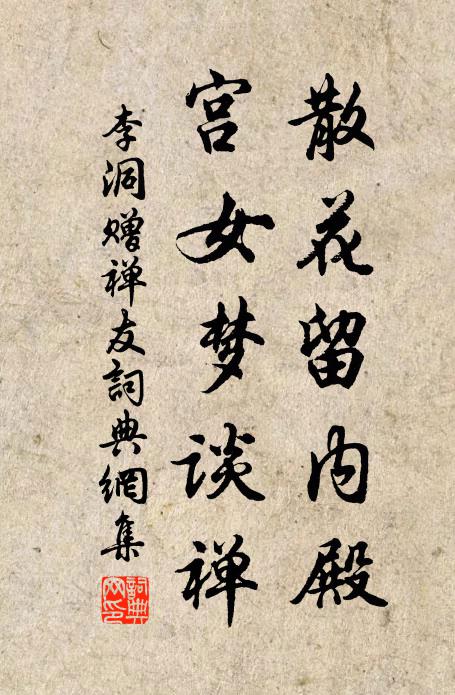 散花留内殿
宫女梦谈禅
李洞赠禅友詞典網集
詞典
网印